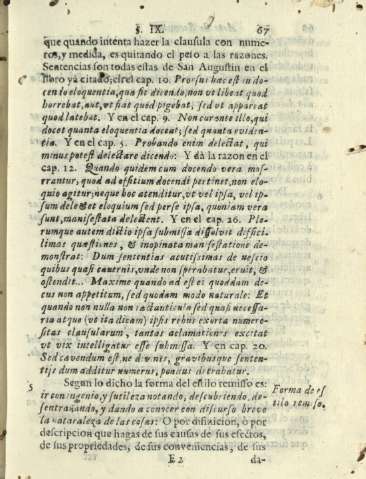 §. IX. 67
que quando intenta hazer la clausula con nume-
ros, y medida, es quitando el peso a las razones.
Sentencias son todas estas de San Augustin en el
libro ya citado, es el cap. 10. Prorsus haec est in do-
cendo eloquentia, qua fit dicendo, non vt libeat quod
horrebat, aut, vt fiat quod pigebat, sed vt appareat
quod latebat. Y en el cap. 9. Non curante illo, qui
docet quanta eloquentia doceat; sed quanta euiden-
tia. Y en el cap. 5. Probando enim delectat, qui
minus potest delectare dicendo: Y dà la razon en el
cap. 12. Quando quidem cum docendo vera mos-
trantur, quod ad officium docendi pertinet, non elo-
quio agitur, neque hoc attenditur, vt vel ipsa, vel ip-
sum delectet eloquium sed per se ipsa, quoniam vera
sunt, manifestata delectent. Y en el cap. 26. Ple-
rumque autem dictio ipsa submissa dissolvit difficil-
limas quæstiones, & inopinata manifestatione de-
monstrat: Dum sententias acutissimas de nescio
quibus quasi cauernis, vnde non sperabatur, eruit, &
ostendit... Maxime quando ad est ei quoddam de-
cus non appetitum, sed quodam modo naturale: Et
quando non nulla non iactanticula sed quasi necessa-
ria atque (vt ita dicam) ipsis rebus exorta numero-
sitas clausularum, tantas aclamationes excitat
vt vix intelligatur esse submissa. Y en cap. 20.
Sed cavendum est, ne divinis, gravibusque senten-
tijs dum additur numerus, pondus detrahatur.
5 Segun lo dicho la forma del estilo remisso es:
ir con ingenio, y sutileza notando, descubriendo, de-
sentrañando, y dando a conocer con discurso breve
la naturaleza de las cosas: O por difinicion, ò por
descripcion que hagas de sus causas de sus efectos,
de sus propriedades, de sus conveniencias, de sus
E 2 da-
Forma de es
tilo remiso.